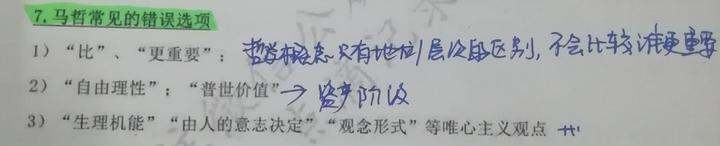 7.马哲常见的错误选项
1）“比”、“更重要”；哲学概念只有地位/层次的区别,不会比较谁更重要
2）“自由理性”；“普世价值”→资产阶级
3）“生理机能”“由人的意志决定”“观念形式”等唯心主义观点